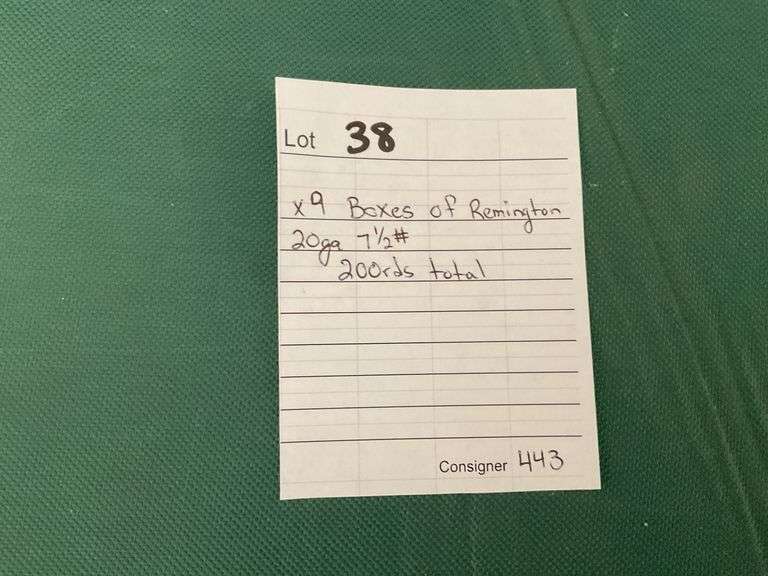 Lot 38
x9 Boxes of Remington
20ga 7 1/2#
200rds total
Consigner 443